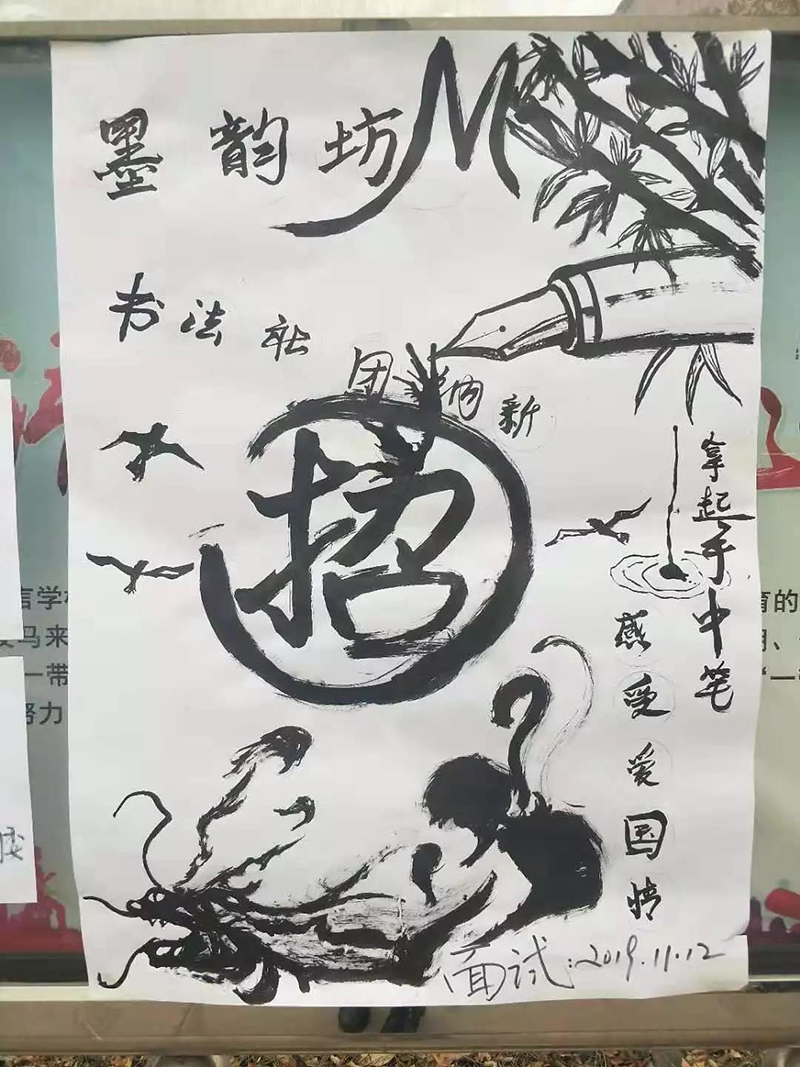 墨韵坊
M
书法社团纳新
招
拿起手中笔
感受爱国情
面试:2019.11.12
言学
马来
一带
努力
育的
"一